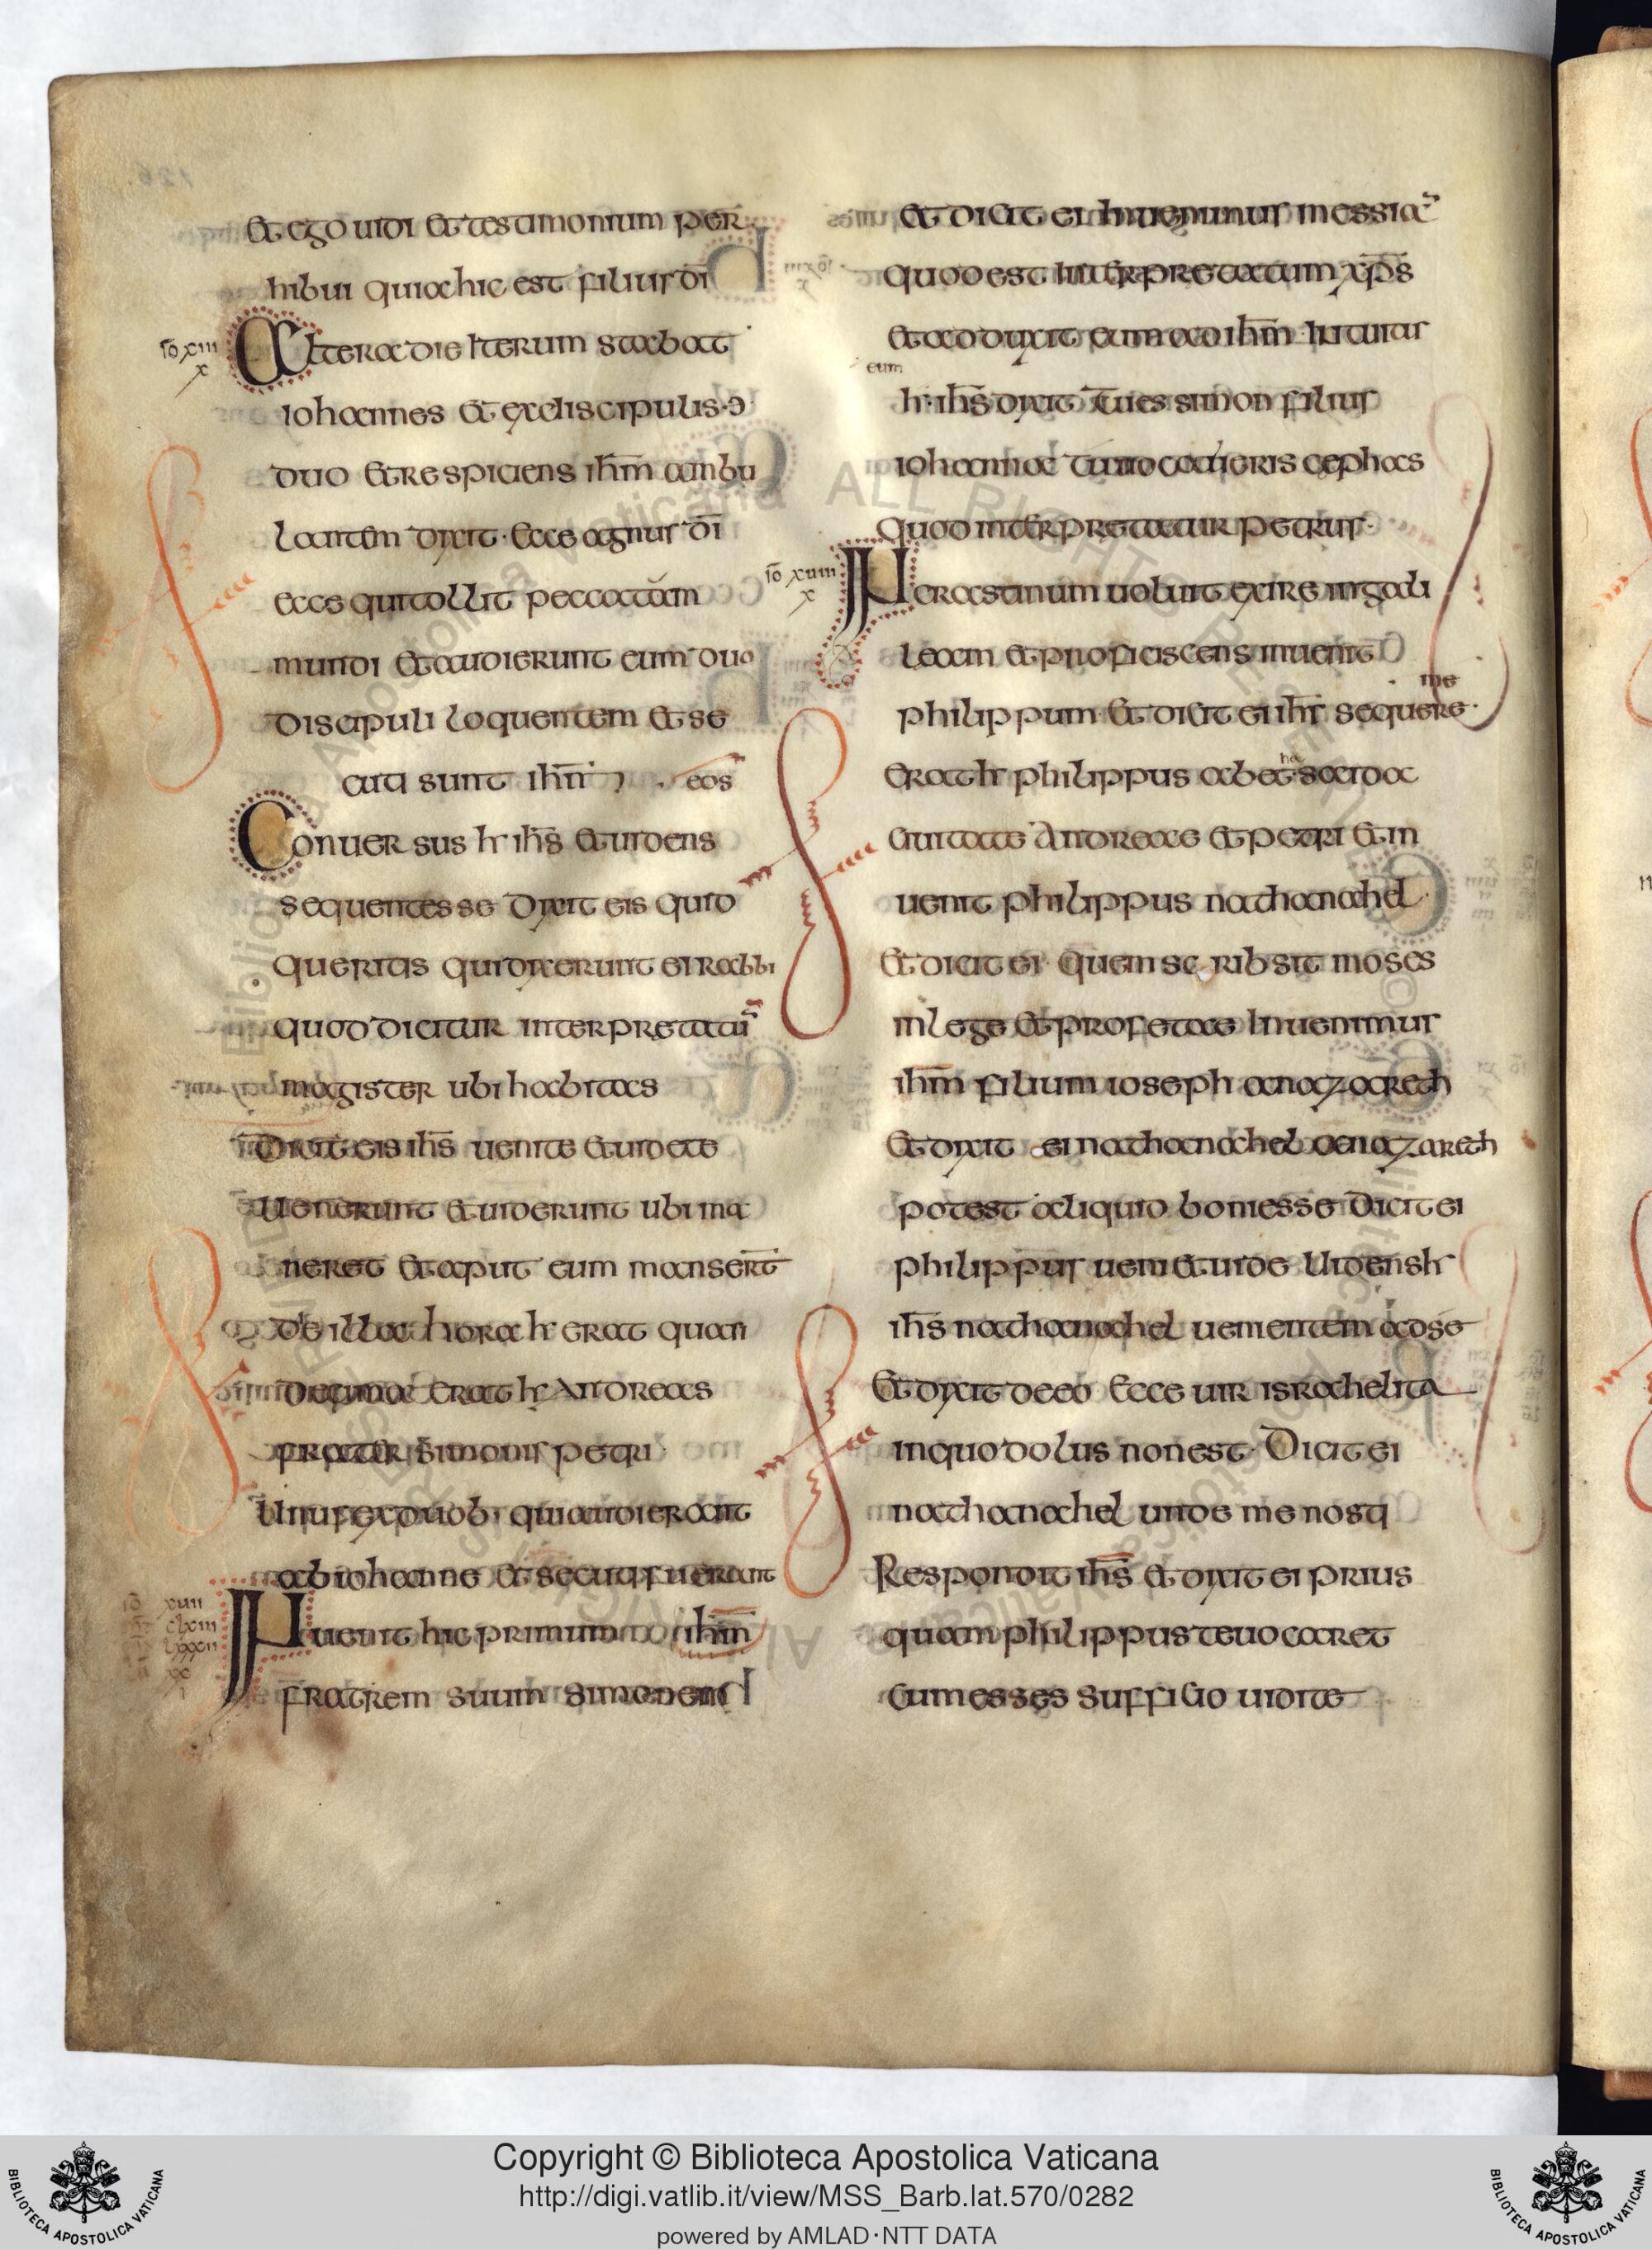 Et ego uidi et testimonium per
hibui quia hic est filius dī
io xiii
x
Altera die iterum stabat
iohannes et ex discipulis ·ɔ·
duo et respiciens ihm̄ ambu
lantem dixit · Ecce agnus dī
ecce qui tollit peccatum
mundi et audierunt eum duo
discipuli loquentem et se
cuti sunt ihm̄ eos
Conuersus h· ihs̄ et uidens
sequentes se dixit eis quid
queritis qui dixerunt ei rabbi
quod dicitur interpretatū
magister ubi habitas
Dicit eis ihs̄ uenite et uidete
Uenerunt et uiderunt ubi ma
neret et aput eum manser̄t
die illa hora h· erat quasi
decima erat h· Andreas
frater simonis petri
Unus ex duob; qui audierant
ab iohanne et secuti fuerant
Inuenit hic primum ihm̄
fratrem suum simonem
et dicit ei Inuenimus messiā
quod est interpretatum xp̄s
et adduxit eum ad ihm̄ Intuitus
eum
h· ihs̄ dixit Tu es simon filius
iohanna tu uocaueris cephas
quod interpretatur petrus
io xuiii
x
In crastinum uoluit exire in gali
leam et proficiscens inuenit
me
philippum et dicit ei ihs̄ sequere
Erat h· philippus abetsaida
ciuitate Andreae et petri et in
uenit philippus nathanahel
Et dicit ei Quem scribsit moses
in lege et profetae Inuenimus
ihm̄ filium ioseph anazareth
Et dixit ei nathanahel anazareth
potest aliquid boni esse Dicit ei
philippus ueni et uide Uidens h·
ihs̄ nathanahel uenientem ad se
Et dixit de eo Ecce uir israhelita
in quo dolus non est · Dicit ei
nathanahel unde me nosti
Respondit ihs̄ et dixit ei prius
quam philippus te uocaret
cum esses suf ficio uidi te
Copyright © Biblioteca Apostolica Vaticana
http://digi.vatlib.it/view/MSS_Barb.lat.570/0282
powered by AMLAD·NTT DATA
BIBLIOTECA APOSTOLICA VATICANA
BIBLIOTECA APOSTOLICA VATICANA